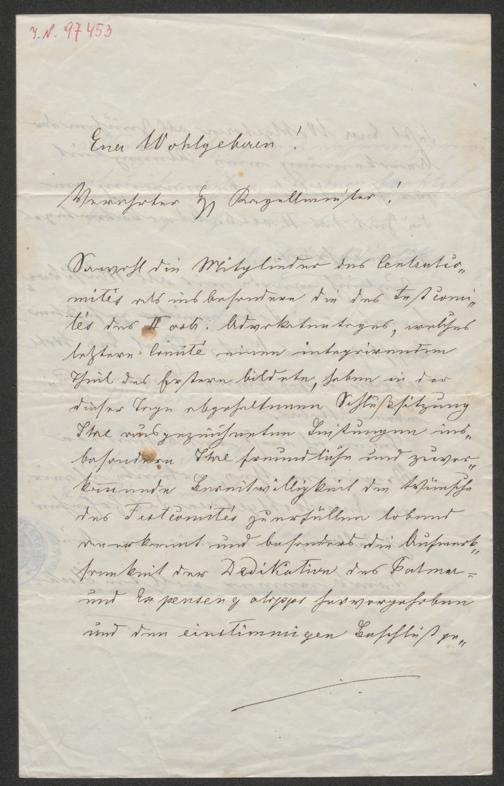 I.N. 97453
Euer Wohlgeboren!
Verehrter H Kapellmeister!
Sowohl die Mitglieder des Centralco„
mités als insbesondere die des Festcomi„
tés des II östr. Advokatentages, welches
letztere Comité einen integrirenden
Theil des Erstern bildete, haben in der
dieser Tage abgehaltenen Schlußsitzung
Ihre ausgezeichneten Leistungen ins„
besondere Ihre freundliche und zuvor„
kommende Bereitwilligkeit die Wünsche
des Festcomités zu erfüllen lobend
anerkannt und besonders die Aufmerk„
samkeit der Dedikation des Palmar-
und Expensengalopps hervorgehoben
und den einstimmigen Beschluß ge„